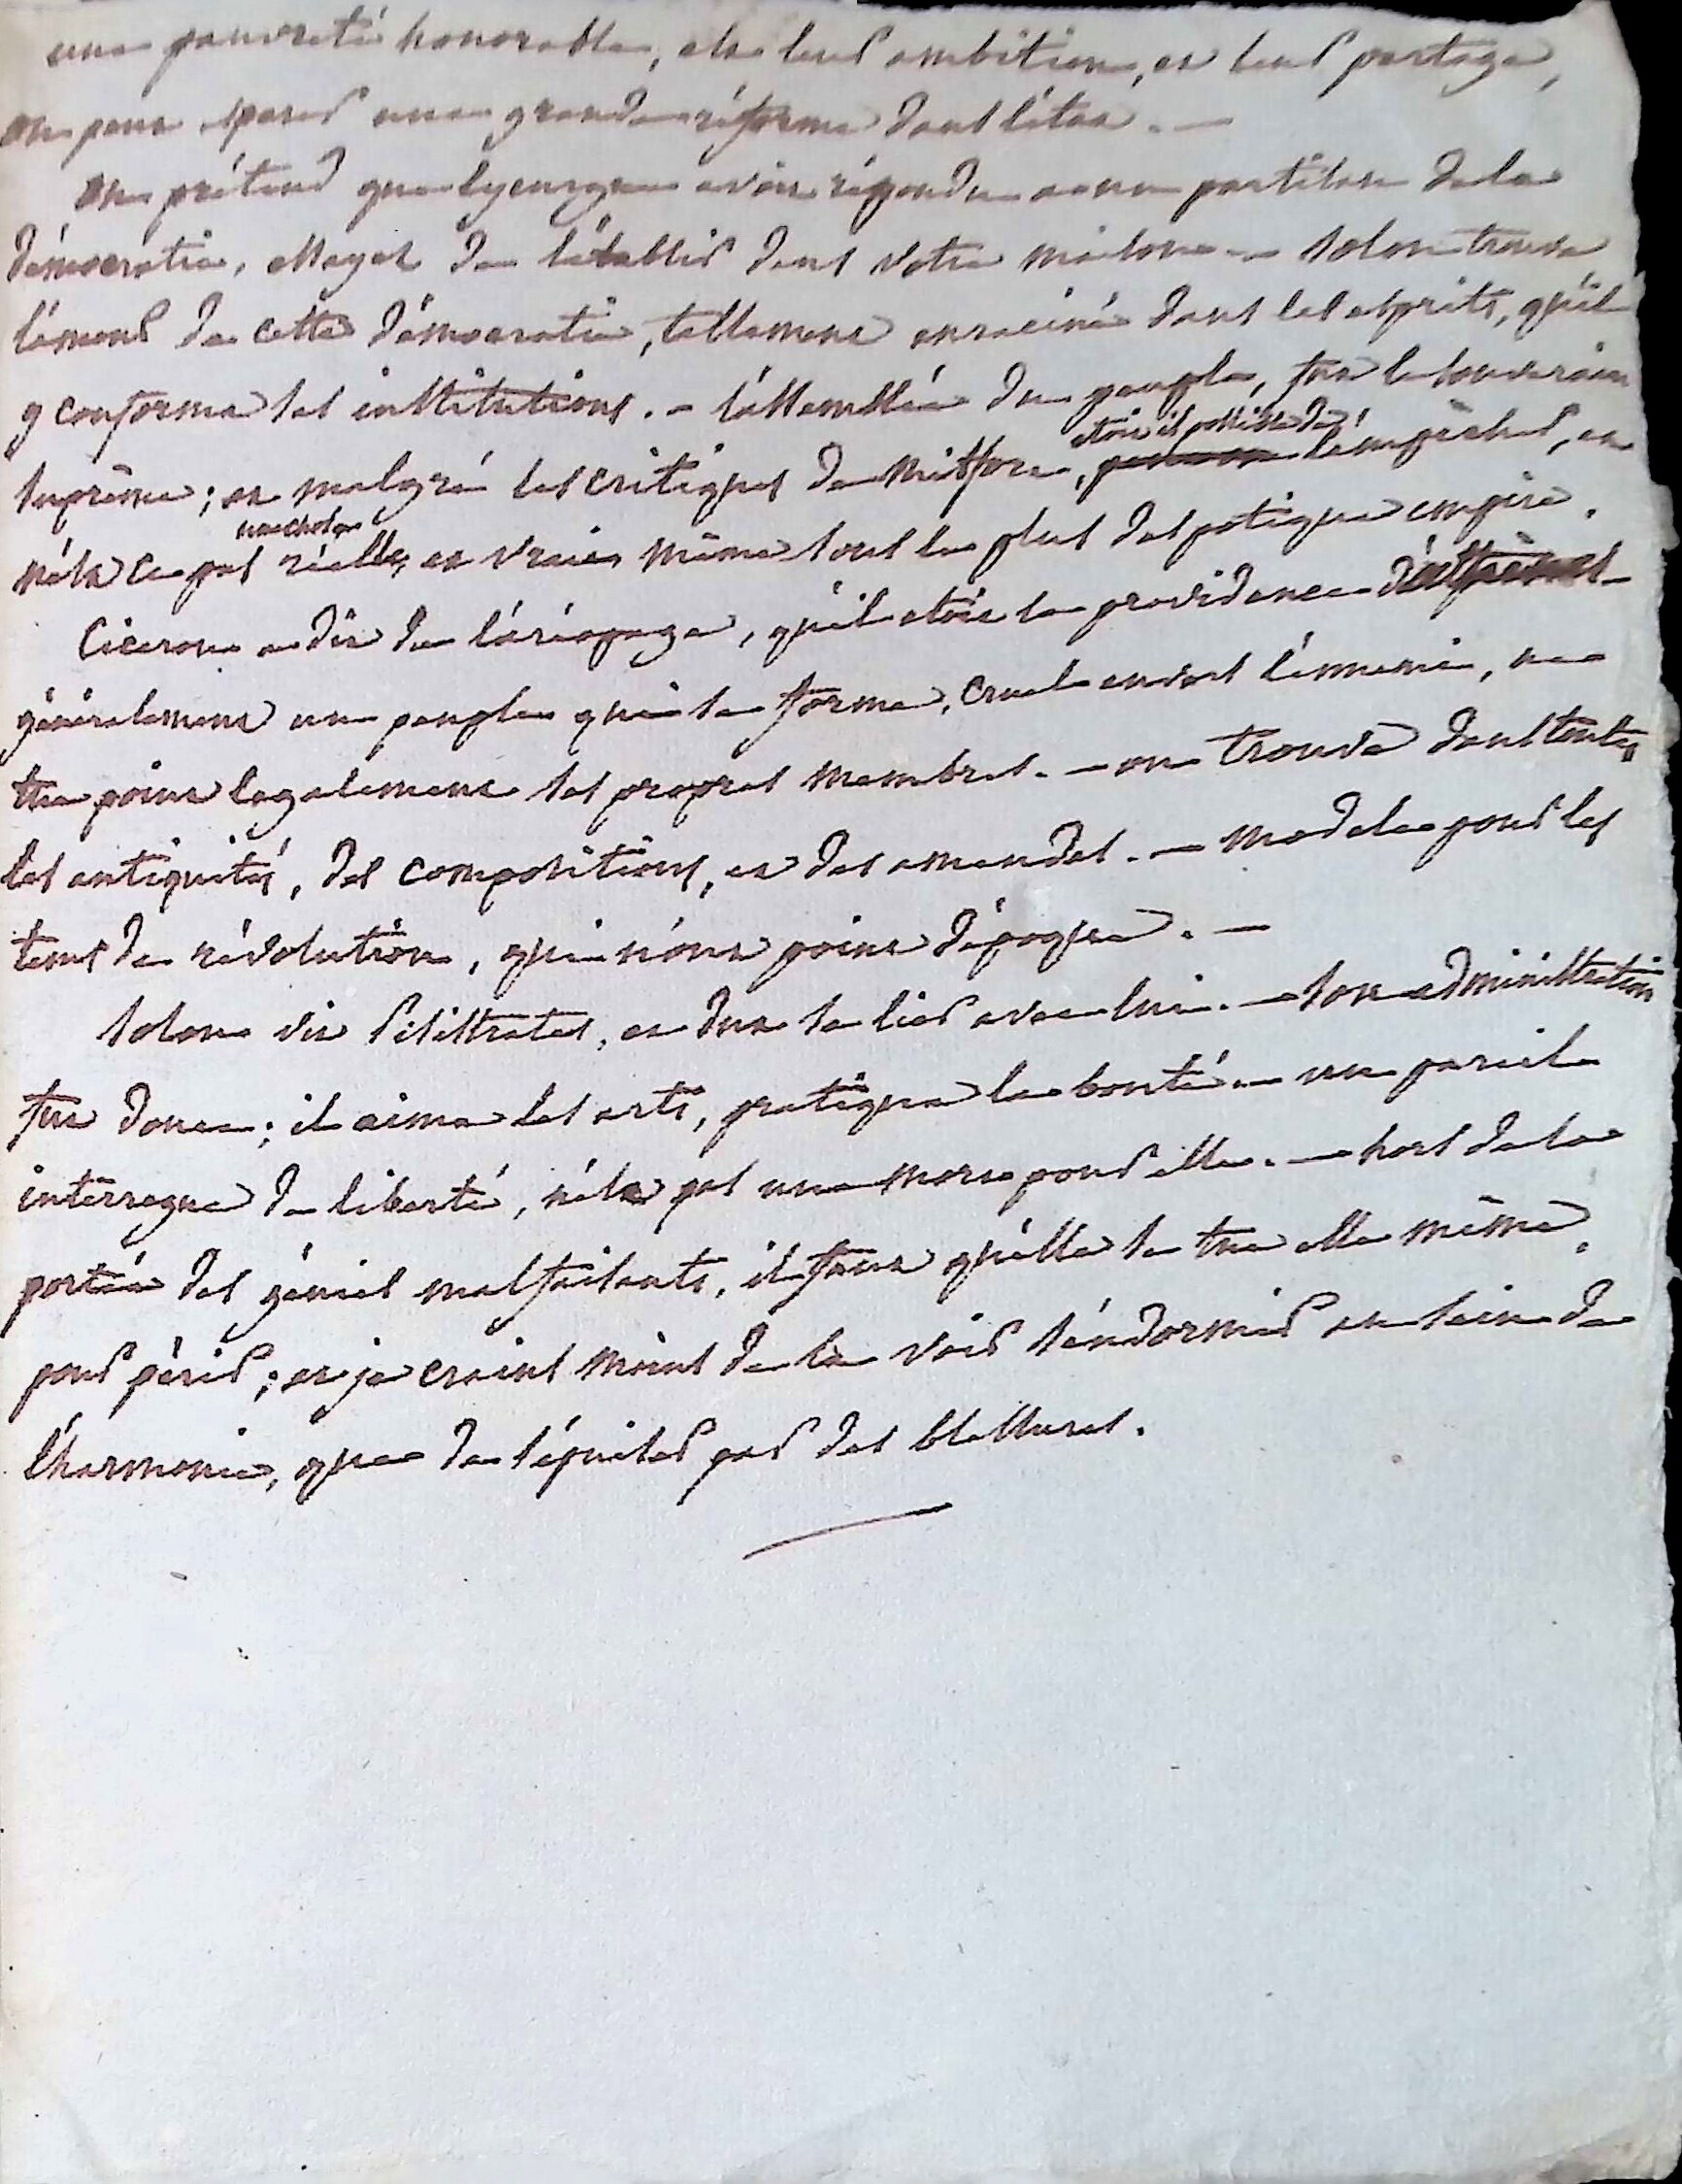 une pauvreté honorable, est leur ambition, et leur partage,
on peut espérer une grande réforme dans l'état. —
on prétend que lycurgue avoit répondu a un partisan de la
démocratie, essayez de l'établir dans votre maison — solon trouva
l'amour de cette démocratie, tellement enraciné dans les esprits, qu'il
y conforma ses institutions. — l'assemblée du peuple, fut le souverain
suprême ; et malgré les critiques de Mitfort, etoit il possible de l'empêcher, et
n'est ce pas une chose réelle, et vraie, même sous le plus despotique empire.
Ciceron a dit de l'aréopage, qu'il etoit la providence d'athènes —
généralement un peuple qui se forme, cruel envers l'ennemi, ne
tue point legalement ses propres membres. — on trouve dans toutes
les antiquités, des compositions, et des amendes. — modele pour les
tems de révolution, qui n'ont point d'époque. —
solon vit Pisistrates, et dut se lier avec lui. — son administration
fut douce ; il aima les arts, pratiqua la bonté. — un pareil
interregne de liberté, n'est pas une mort pour elle. — hors de la
portée des génies malfaisants, il faut qu'elle se tue elle même,
pour périr ; et je crains moins de la voir s'endormir au sein de
l'harmonie, que de s'épuiser par des blessures.